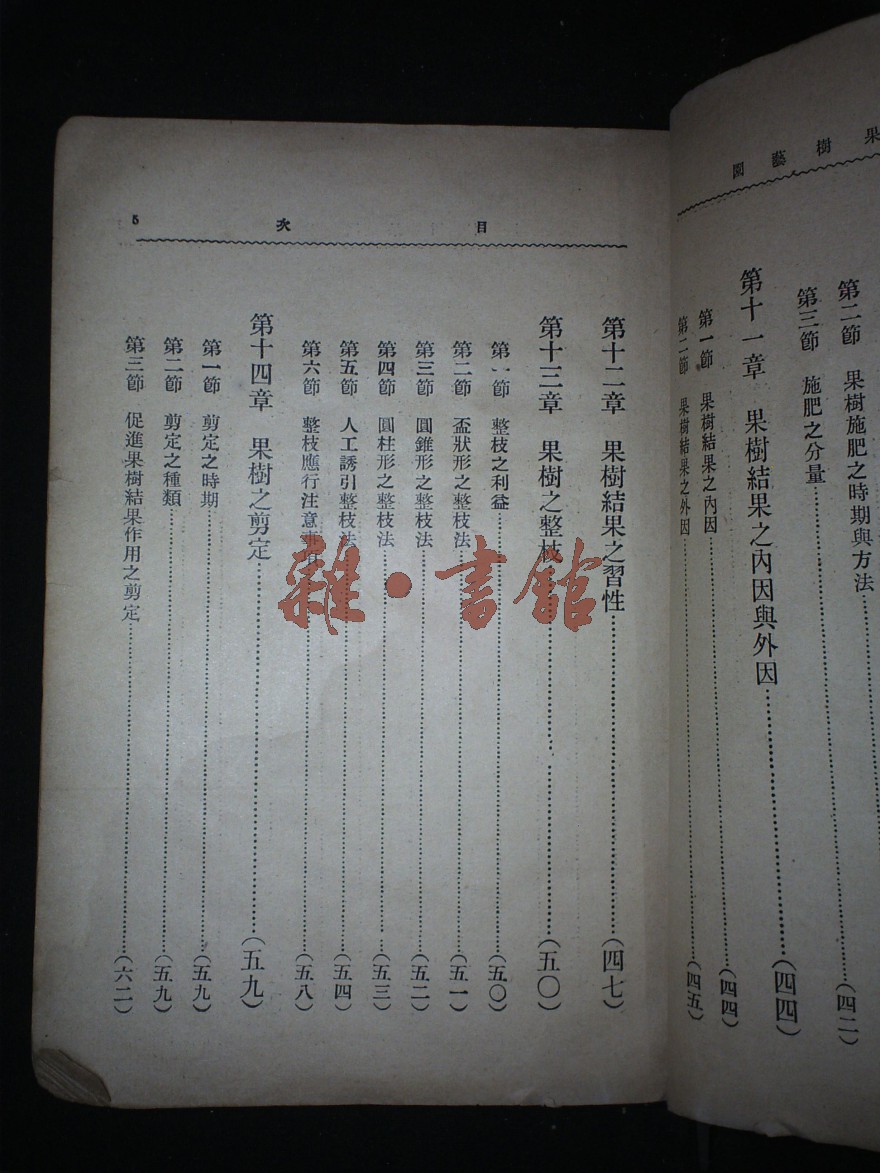 果樹園藝
第二節 果樹施肥之時期與方法……(四二)
第三節 施肥之分量
第十一章 果樹結果之內因與外因……(四四)
第一節 果樹結果之內因……(四四)
第二節 果樹結果之外因……(四五)
目次 5
第十二章 果樹結果之習性……(四七)
第十三章 果樹之整枝……(五〇)
第一節 整枝之利益……(五〇)
第二節 盃狀形之整枝法……(五一)
第三節 圓錐形之整枝法……(五二)
第四節 圓柱形之整枝法……(五三)
第五節 人工誘引整枝法……(五四)
第六節 整枝應行注意事項……(五八)
第十四章 果樹之剪定……(五九)
第一節 剪定之時期……(五九)
第二節 剪定之種類……(五九)
第三節 促進果樹結果作用之剪定……(六二)
雜·書館